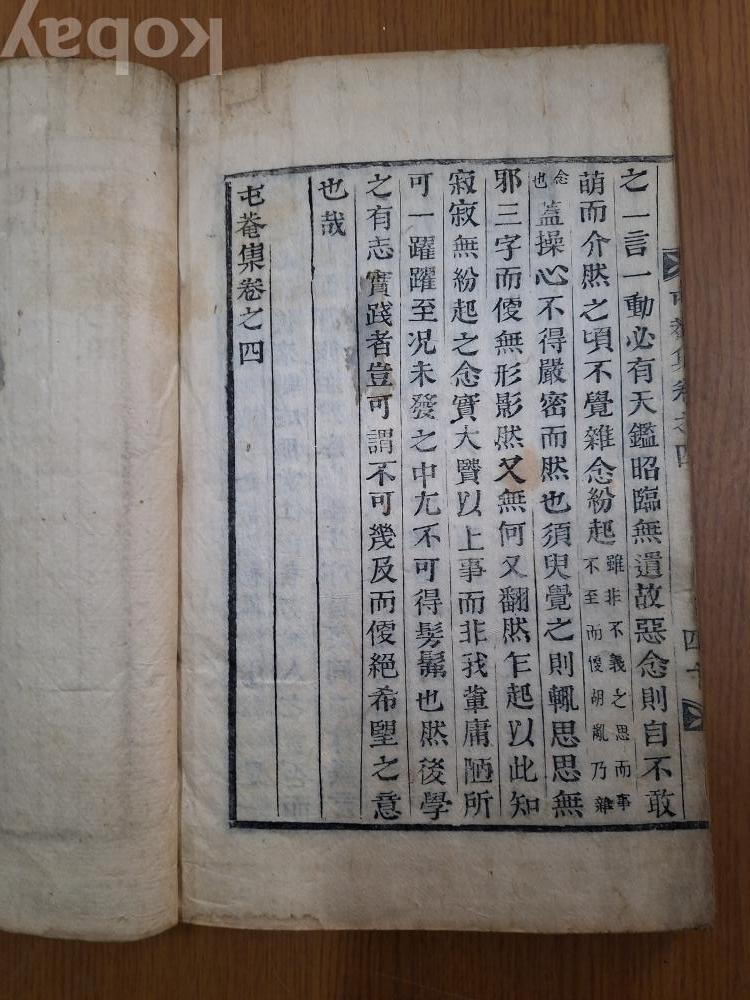 屯菴集卷之四
四十
之一言一動必有天鑑昭臨無遺故惡念則自不敢
萌而介然之頃不覺雜念紛起雖非不義之思而事不至而便胡亂乃雜
念也蓋操心不得嚴密而然也須臾覺之則輒思思無
邪三字而便無形影然又無何又翻然乍起以此知
寂寂無紛起之念實大賢以上事而非我輩庸陋所
可一躍躍至况未發之中尤不可得髣髴也然後學
之有志實踐者豈可謂不可幾及而便絕希望之意
也哉
屯菴集卷之四
kobay